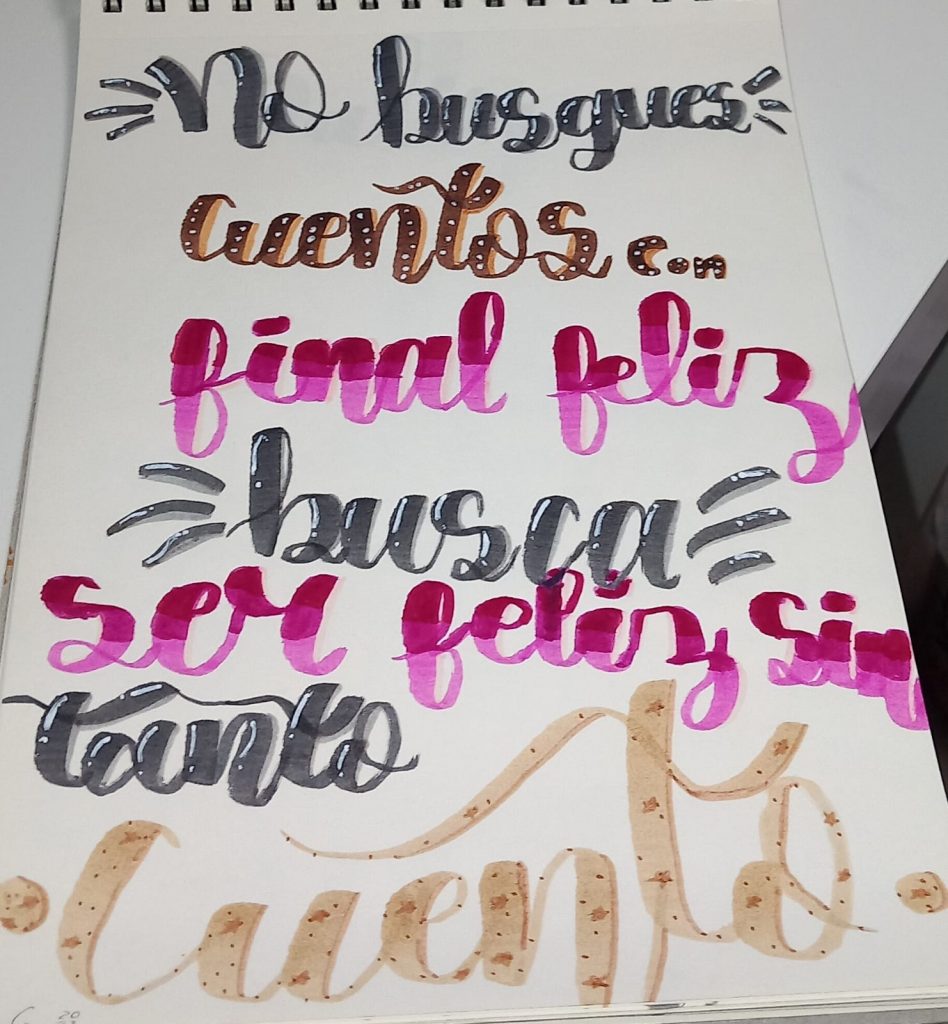 No busques
Cuentos con
final feliz
busca
ser feliz sin
tanto
Cuento
20